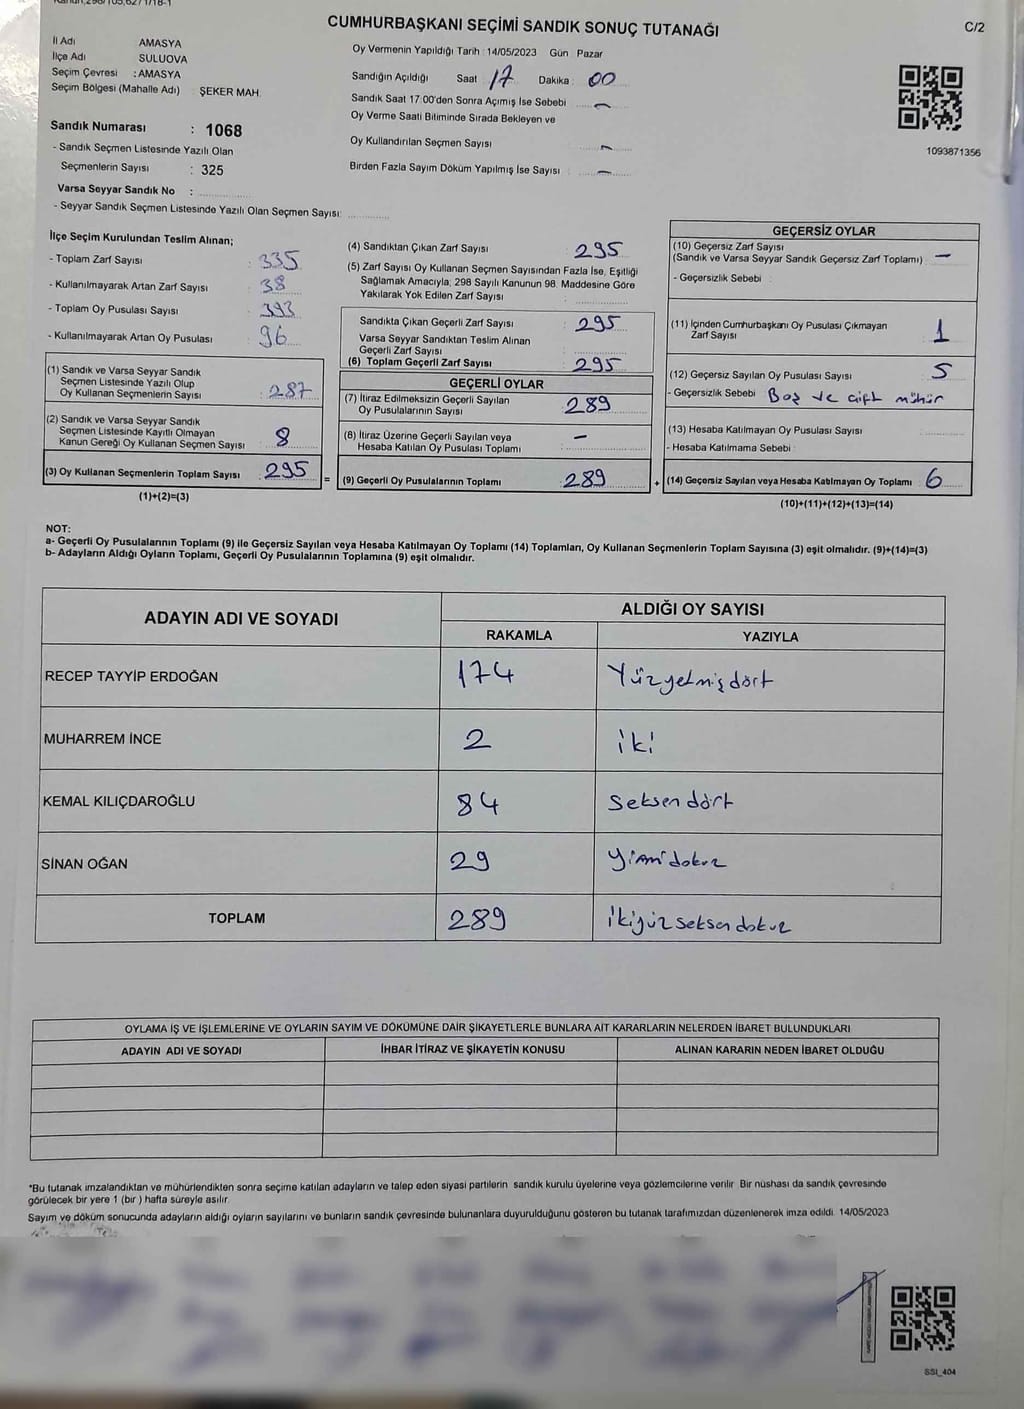 CUMHURBAŞKANI SEÇİMİ SANDIK SONUÇ TUTANAĞI
C/2
İl Adı AMASYA
İlçe Adı SULUOVA
Seçim Çevresi : AMASYA
Seçim Bölgesi (Mahalle Adı) : ŞEKER MAH.
Sandık Numarası : 1068
- Sandık Seçmen Listesinde Yazılı Olan
Seçmenlerin Sayısı : 325
Varsa Seyyar Sandık No :
- Seyyar Sandık Seçmen Listesinde Yazılı Olan Seçmen Sayısı:
Oy Vermenin Yapıldığı Tarih : 14/05/2023 Gün Pazar
Sandığın Açıldığı Saat 17 Dakika : 00
Sandık Saat 17:00'den Sonra Açımış İse Sebebi -
Oy Verme Saati Bitiminde Sırada Bekleyen ve
Oy Kullandırılan Seçmen Sayısı -
Birden Fazla Sayım Döküm Yapılmış İse Sayısı : -
1093871356
İlçe Seçim Kurulundan Teslim Alınan;
- Toplam Zarf Sayısı : 335
- Kullanılmayarak Artan Zarf Sayısı : 38
- Toplam Oy Pusulası Sayısı : 393
- Kullanılmayarak Artan Oy Pusulası : 96
(1) Sandık ve Varsa Seyyar Sandık
Seçmen Listesinde Yazılı Olup
Oy Kullanan Seçmenlerin Sayısı : 287
(2) Sandık ve Varsa Seyyar Sandık
Seçmen Listesinde Kayıtlı Olmayan
Kanun Gereği Oy Kullanan Seçmen Sayısı 8
(3) Oy Kullanan Seçmenlerin Toplam Sayısı : 295
(1)+(2)=(3)
(4) Sandıktan Çıkan Zarf Sayısı : 295
(5) Zarf Sayısı Oy Kullanan Seçmen Sayısından Fazla İse, Eşitliği
Sağlamak Amacıyla; 298 Sayılı Kanunun 98. Maddesine Göre
Yakılarak Yok Edilen Zarf Sayısı :
Sandıkta Çıkan Geçerli Zarf Sayısı : 295
Varsa Seyyar Sandıktan Teslim Alınan
Geçerli Zarf Sayısı :
(6) Toplam Geçerli Zarf Sayısı : 295
GEÇERLİ OYLAR
(7) İtiraz Edilmeksizin Geçerli Sayılan
Oy Pusulalarının Sayısı : 289
(8) İtiraz Üzerine Geçerli Sayılan veya
Hesaba Katılan Oy Pusulası Toplamı : -
= (9) Geçerli Oy Pusulalarının Toplamı : 289
GEÇERSİZ OYLAR
(10) Geçersiz Zarf Sayısı
(Sandık ve Varsa Seyyar Sandık Geçersiz Zarf Toplamı) : -
- Geçersizlik Sebebi :
(11) İçinden Cumhurbaşkanı Oy Pusulası Çıkmayan
Zarf Sayısı 1
(12) Geçersiz Sayılan Oy Pusulası Sayısı : 5
- Geçersizlik Sebebi : Boş ve çift mühür
(13) Hesaba Katılmayan Oy Pusulası Sayısı :
- Hesaba Katılmama Sebebi :
+ (14) Geçersiz Sayılan veya Hesaba Katılmayan Oy Toplamı : 6
(10)+(11)+(12)+(13)=(14)
NOT:
a- Geçerli Oy Pusulalarının Toplamı (9) ile Geçersiz Sayılan veya Hesaba Katılmayan Oy Toplamı (14) Toplamları, Oy Kullanan Seçmenlerin Toplam Sayısına (3) eşit olmalıdır. (9)+(14)=(3)
b- Adayların Aldığı Oyların Toplamı, Geçerli Oy Pusulalarının Toplamına (9) eşit olmalıdır.
ADAYIN ADI VE SOYADI ALDIĞI OY SAYISI
RAKAMLA YAZIYLA
RECEP TAYYİP ERDOĞAN 174 Yüzyetmişdört
MUHARREM İNCE 2 iki
KEMAL KILIÇDAROĞLU 84 Seksen dört
SİNAN OĞAN 29 Yirmi dokuz
TOPLAM 289 ikiyüz seksen dokuz
OYLAMA İŞ VE İŞLEMLERİNE VE OYLARIN SAYIM VE DÖKÜMÜNE DAİR ŞİKAYETLERLE BUNLARA AİT KARARLARIN NELERDEN İBARET BULUNDUKLARI
ADAYIN ADI VE SOYADI İHBAR İTİRAZ VE ŞİKAYETİN KONUSU ALINAN KARARIN NEDEN İBARET OLDUĞU
*Bu tutanak imzalandıktan ve mühürlendikten sonra seçime katılan adayların ve talep eden siyasi partilerin sandık kurulu üyelerine veya gözlemcilerine verilir. Bir nüshası da sandık çevresinde
görülecek bir yere 1 (bir ) hafta süreyle asılır.
Sayım ve döküm sonucunda adayların aldığı oyların sayılarını ve bunların sandık çevresinde bulunanlara duyurulduğunu gösteren bu tutanak tarafımızdan düzenlenerek imza edildi. 14/05/2023
SSI_404